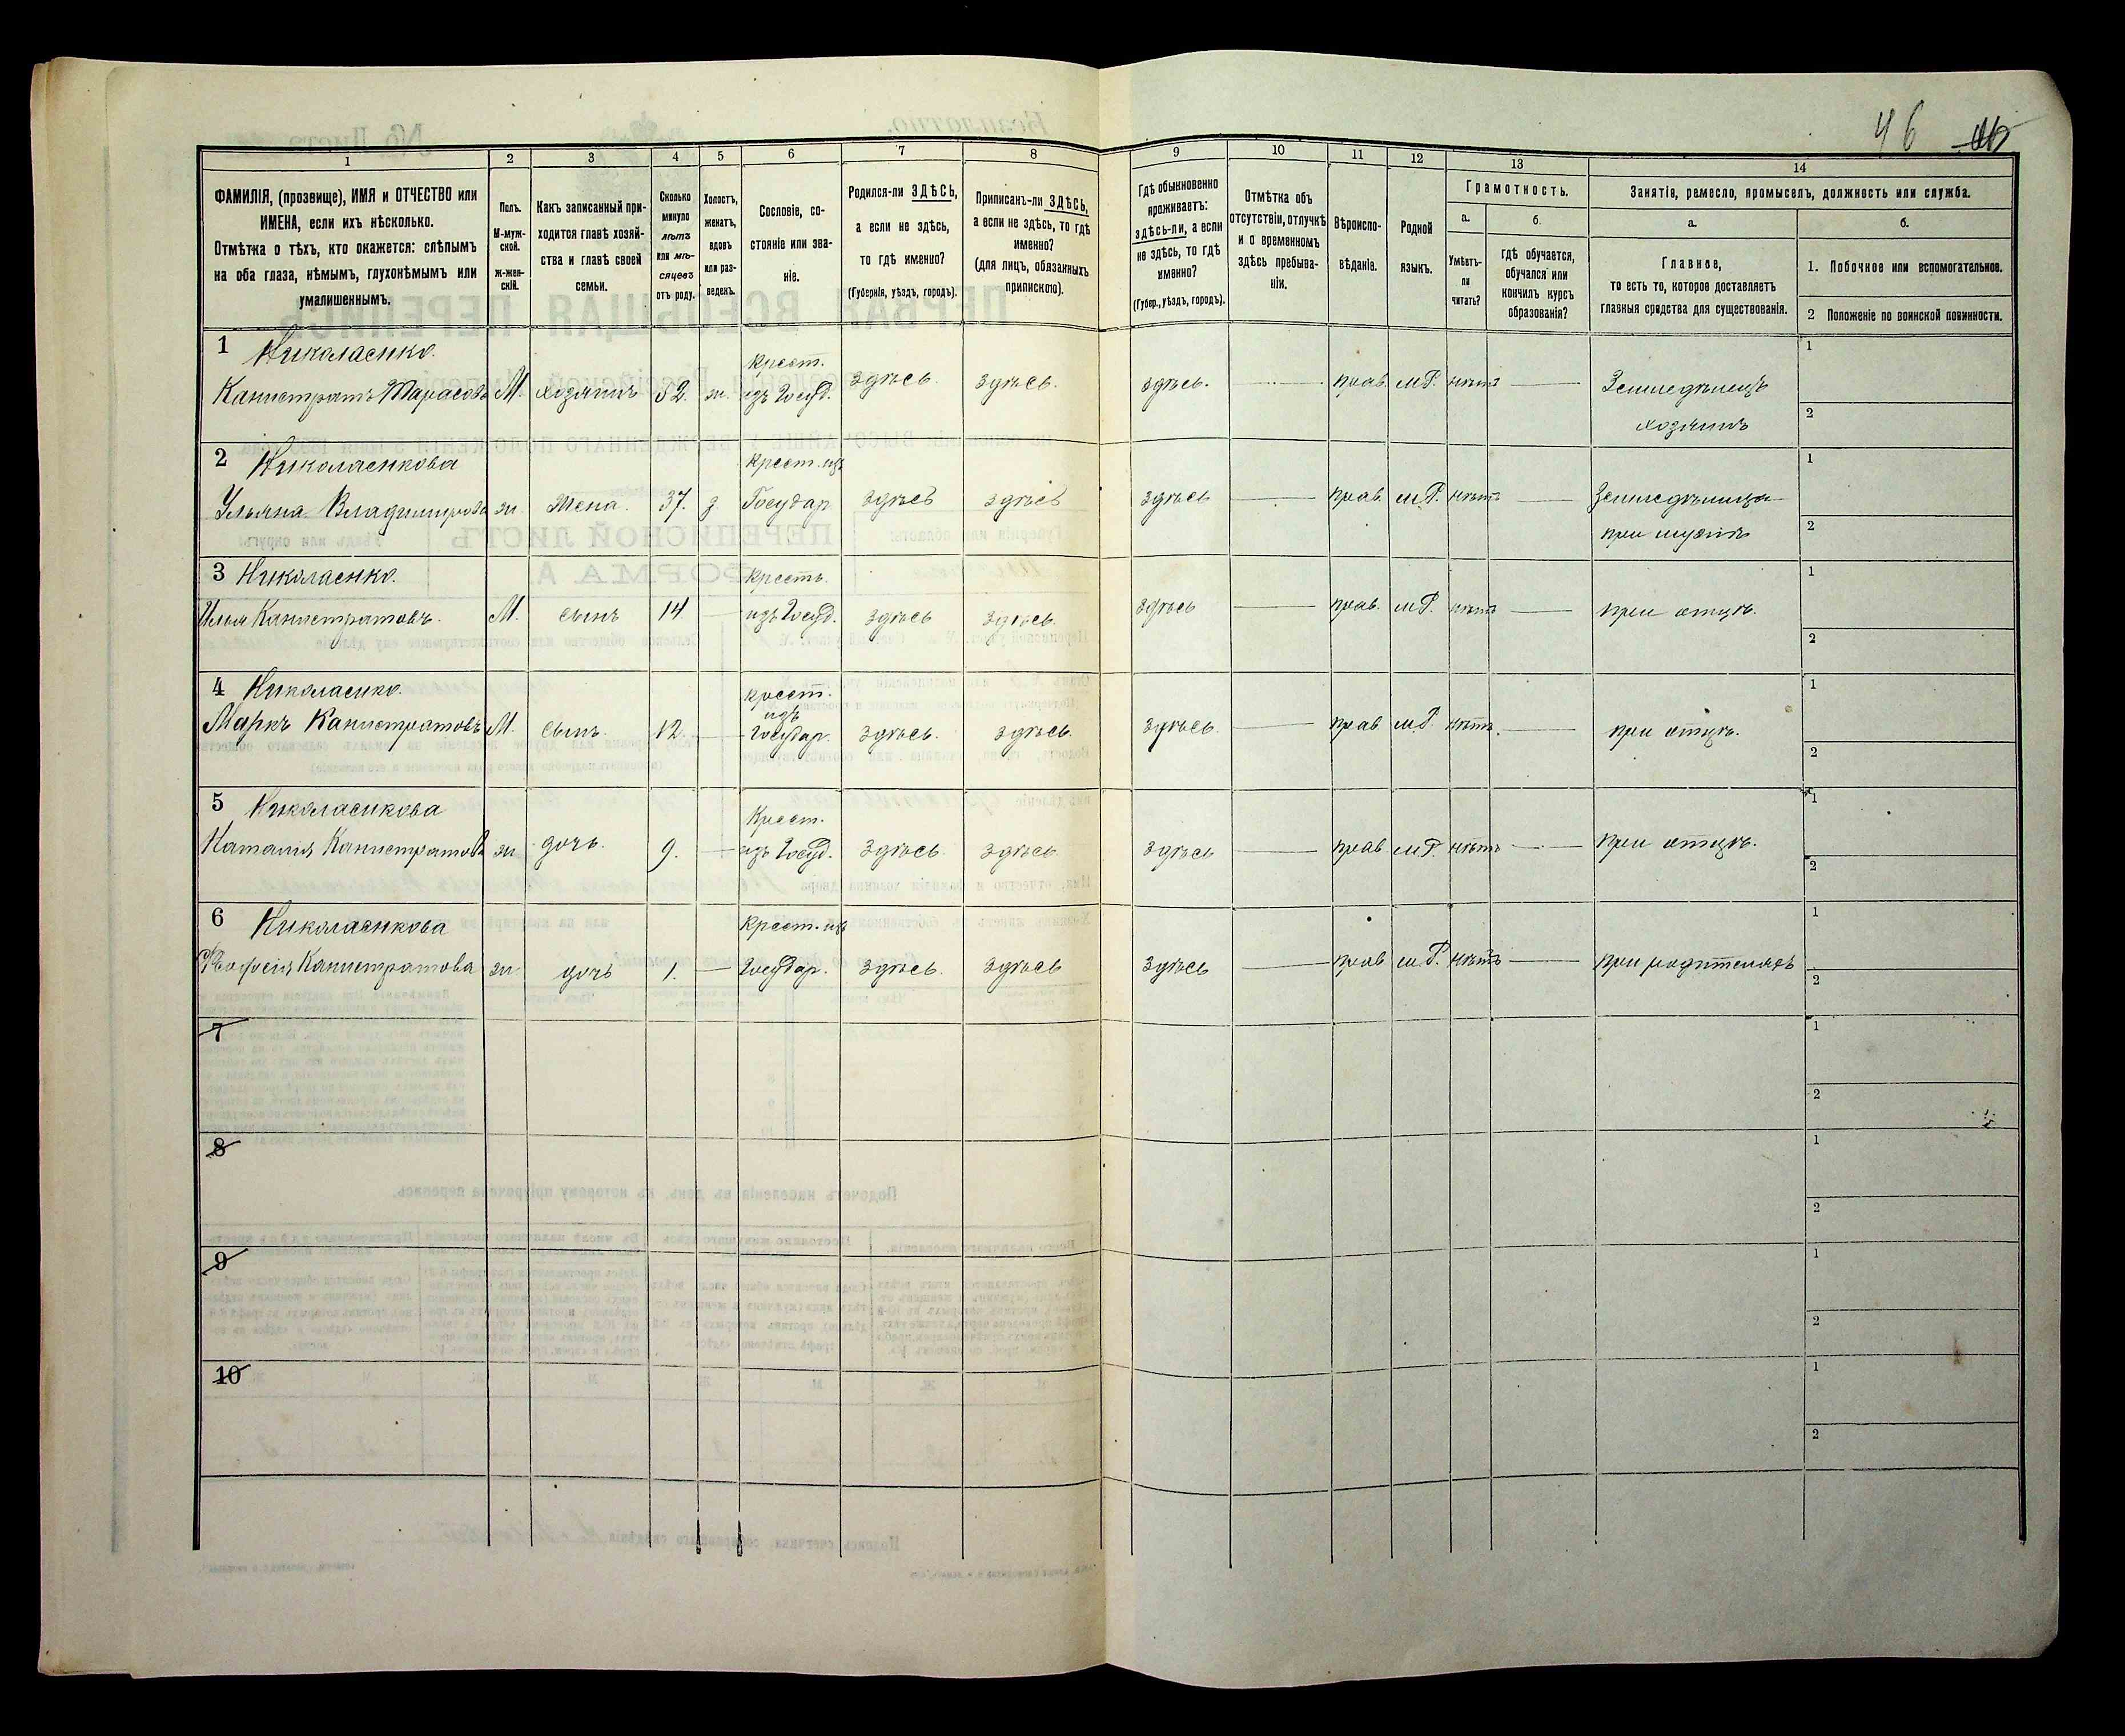 46
1 2 3 4 5 6 7 8 9 10 11 12 13 14
ФАМИЛІЯ, (прозвище), ИМЯ и ОТЧЕСТВО или
ИМЕНА, если ихъ нѣсколько.
Отмѣтка о тѣхъ, кто окажется: слѣпымъ
на оба глаза, нѣмымъ, глухонѣмымъ или
умалишеннымъ.
Полъ.
М-муж-
ской.
ж-жен-
скій.
Какъ записанный при-
ходится главѣ хозяй-
ства и главѣ своей
семьи.
Сколько
минуло
лѣтъ
или мѣ-
сяцевъ
отъ роду.
Холостъ,
женатъ,
вдовъ
или раз-
веденъ.
Сословіе, со-
стояніе или зва-
ніе.
Родился-ли ЗДѢСЬ,
а если не здѣсь,
то гдѣ именно?
(Губернія, уѣздъ, городъ).
Приписанъ-ли ЗДѢСЬ,
а если не здѣсь, то гдѣ
именно?
(для лицъ, обязанныхъ
припискою).
Гдѣ обыкновенно
проживаетъ:
здѣсь-ли, а если
не здѣсь, то гдѣ
именно?
(Губер., уѣздъ, городъ).
Отмѣтка объ
отсутствіи, отлучкѣ
и о временномъ
здѣсь пребыва-
ніи.
Вѣроиспо-
вѣданіе.
Родной
языкъ.
Грамотность.
а.
Умѣетъ-
ли
читать?
б.
гдѣ обучается,
обучался или
кончилъ курсъ
образованія?
Занятіе, ремесло, промыселъ, должность или служба.
а.
Главное,
то есть то, которое доставляетъ
главныя средства для существованія.
б.
1. Побочное или вспомогательное.
2 Положеніе по воинской повинности.
1 Николаенко. Крест. 1
Канистратъ Тарасовъ М. хозяинъ ж. изъ Госуд. здѣсь. здѣсь. здѣсь. прав. м.Р. нѣтъ Земледѣлецъ
хозяинъ 2
2 Николаенкова Крест. изъ 1
Ульяна Владимирова ж. Жена. 37. з Государ здѣсь здѣсь здѣсь прав. м.Р. нѣтъ Земледѣлица
при мужѣ 2
3 Николаенко. Крестъ. 1
Илья Канистратовъ. М. сынъ 14 изъ Госуд. здѣсь здѣсь. здѣсь прав. м.Р. нѣтъ при отцѣ.
2
4 Николаенко. крест. 1
изъ
Маркъ Канистратовъ М. сынъ. 12 Государ. здѣсь. здѣсь. здѣсь. прав м.Р. нѣтъ. при отцѣ.
2
5 Николаенкова Крест. 1
Наталия Канистратов ж дочь. 9. изъ Госуд. здѣсь. здѣсь здѣсь прав м.Р. нѣтъ при отцѣ.
2
6 Николаенкова Крест. изъ 1
Канистратова ж дочь 1. Государ. здѣсь. здѣсь здѣсь прав м.Р. нѣтъ при родителяхъ
2
7 1
2
8 1
2
9 1
2
10 1
2